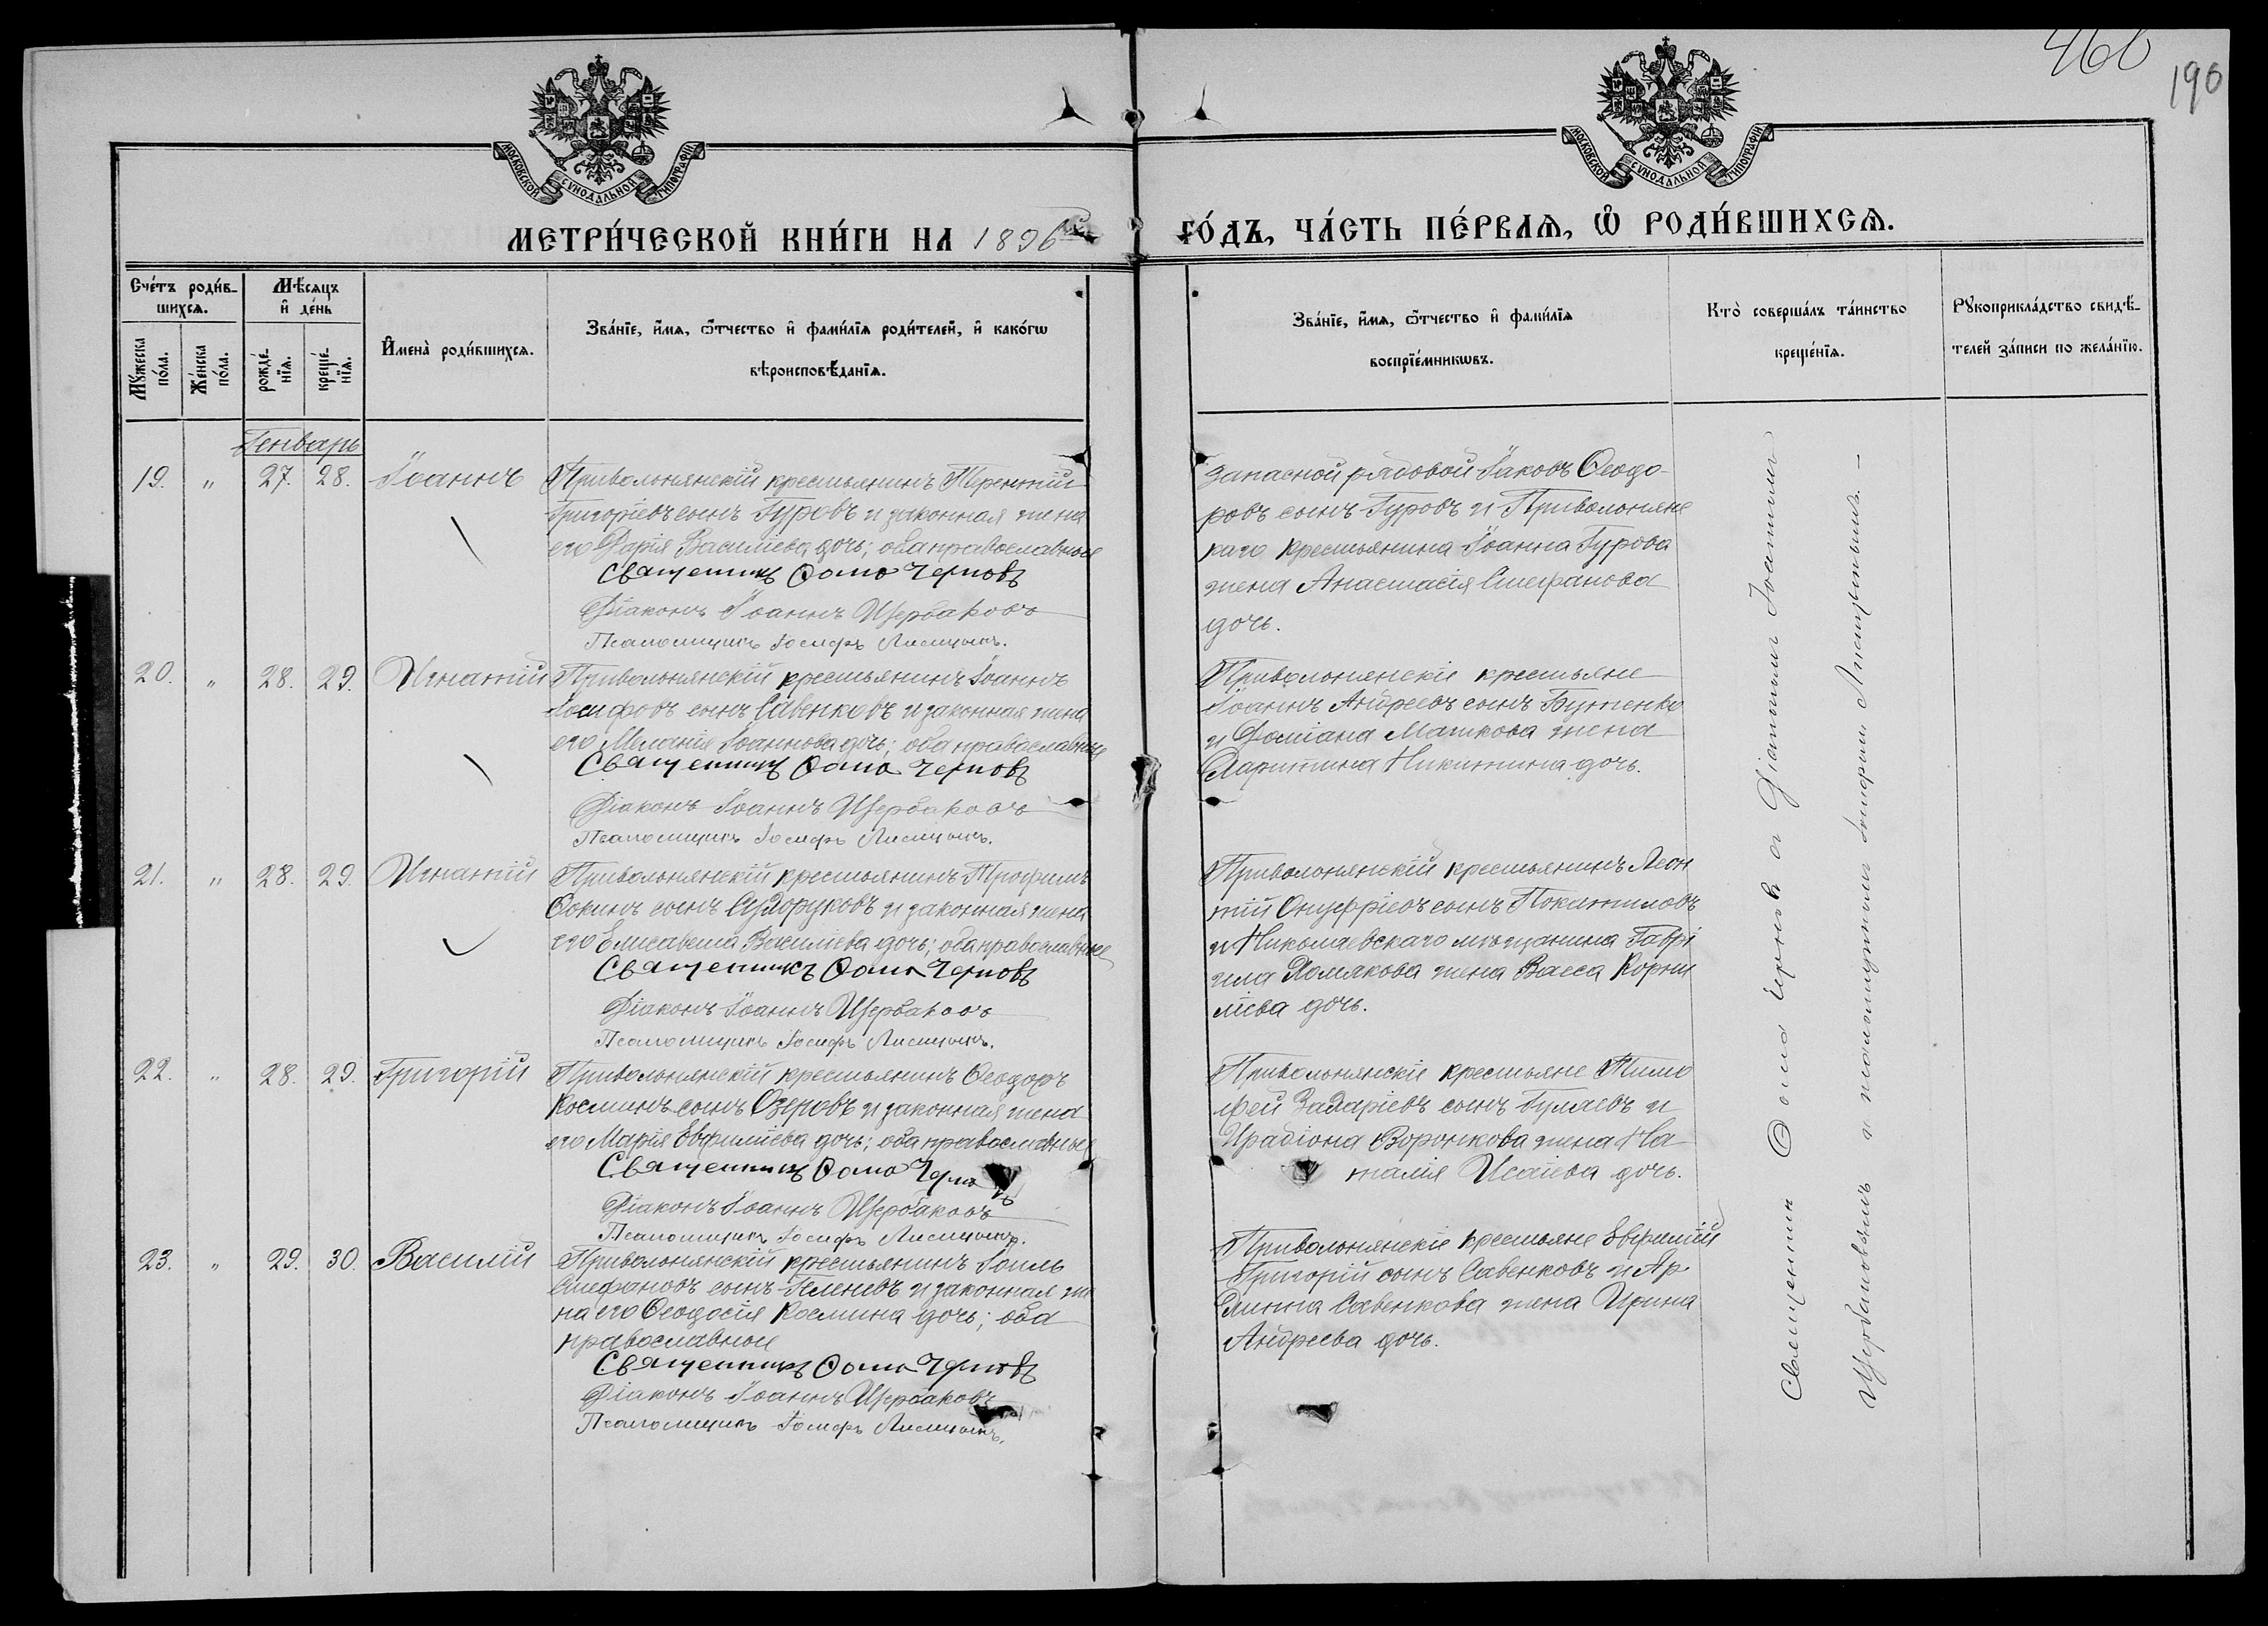 460
190
МОСКОВСКОЙ СѴНОДАЛЬНОЙ ТИПОГРАФІИ
МОСКОВСКОЙ СѴНОДАЛЬНОЙ ТИПОГРАФІИ
МЕТРИ́ЧЕСКОЙ КНИ́ГИ НА 1896
ГО́ДЪ, ЧА́СТЬ ПЕ́РВАѦ, Ѽ РОДИ́ВШИХСѦ.
Сче́тъ роди́в-
шихсѧ.
Мꙋ́жеска
по́ла.
Же́нска
по́ла.
Мѣ́сѧцъ
и҆ де́нь
рожде́-
нїѧ.
креще́-
нїѧ.
И҆мена̀ роди́вшихсѧ.
Зва́нїе, и҆́мѧ, ѻ҆́тчество и҆ фами́лїѧ роди́телей, и҆ како́гѡ
вѣроисповѣ́данїѧ.
Зва́нїе, и҆́мѧ, ѻ҆́тчество и҆ фами́лїѧ
воспрїе́мникѡвъ.
Кто̀ соверша́лъ та́инство
креще́нїѧ.
Рꙋкоприкла́дство свидѣ́-
телей за́писи по жела́нїю.
Генварь
19. " 27. 28. Іоаннъ
Привольнянскій крестьянинъ Терентій
Григоріевъ сынъ Гуровъ и законная жена
его Дарія Василіева дочь; оба православные
Священникъ Ѳома Черновъ
Діаконъ Іоаннъ Щербаковъ
Псаломщикъ Іосифъ Лисицынъ.
Запасной рядовой Іаковъ Ѳеодо-
ровъ сынъ Гуровъ и Привольнянс
каго крестьянина Іоанна Гурова
жена Анастасія Стефанова
дочь.
20. " 28. 29. Игнатій
Привольнянскій крестьянинъ Іоаннъ
Іосифовъ сынъ Савенковъ и законная жена
его Меланія Іоаннова дочь; оба православные
Священникъ Ѳома Черновъ
Діаконъ Іоаннъ Щербаковъ
Псаломщикъ Іосифъ Лисицынъ.
Привольнянскіе крестьяне
Іоаннъ Андреевъ сынъ Бутенко
и Даміана Машкова жена
Харитина Никитина дочь.
21. " 28. 29. Игнатій
Привольнянскій крестьянинъ Трофимъ
Ѳокинъ сынъ Сухоруковъ и законная жена
его Елисавета Василіева дочь; оба православные
Священникъ Ѳома Черновъ
Діаконъ Іоаннъ Щербаковъ
Псаломщикъ Іосифъ Лисицынъ.
Привольнянскій крестьянинъ Леон
тій Онуфріевъ сынъ Покатиловъ
и Николаевскаго мѣщанина Гаврі
ила Хомякова жена Васса Корни
ліева дочь.
22. " 28. 29. Григорій
Привольнянскій крестьянинъ Ѳеодоръ
Косминъ сынъ Озеровъ и законная жена
его Марія Евфиміева дочь; оба православные
Священникъ Ѳома Черновъ
Діаконъ Іоаннъ Щербаковъ
Псаломщикъ Іосифъ Лисицынъ.
Привольнянскіе крестьяне Тимо
фей Захаріевъ сынъ Гуляевъ и
Иродіона Воронкова жена На
талія Исаіева дочь.
23. " 29. 30. Василій
Привольнянскій крестьянинъ Іоиль
Стефановъ сынъ и законная же
на его Ѳеодосія Космина дочь; оба
православные
Священникъ Ѳома Черновъ
Діаконъ Іоаннъ Щербаковъ
Псаломщикъ Іосифъ Лисицынъ.
Привольнянскіе крестьяне Евфимій
Григорій сынъ Савенковъ и Ар
Савенкова жена Ирина
Андреева дочь.
Священникъ Ѳома Черновъ съ Діакономъ Іоанномъ
Щербаковымъ и псаломщикомъ Іосифомъ Лисицынымъ.